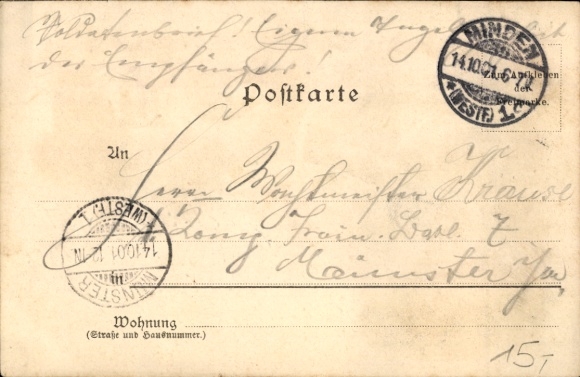 Soldatenbrief! Eigene Angelegenheit
des Empfängers!
MINDEN
14.10.01. 6-7N
* (WESTF.) 1.
Zum Aufkleben
der
Freimarke.
Postkarte
An
Herrn Wachtmeister Krause
Comp. Train. Batl. 7
Münster
MÜNSTER
14.10.01. 12-1N
(WESTF.) 1.
Wohnung
(Straße und Hausnummer.)
15,-